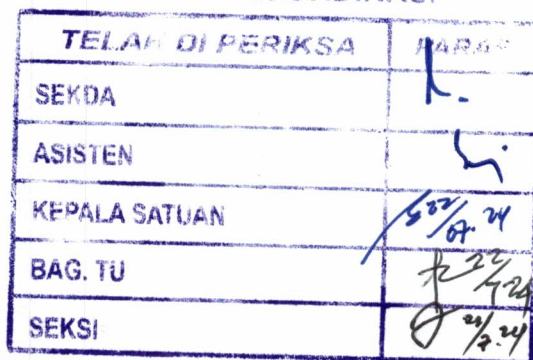 TELAH DI PERIKSA PARAF
SEKDA
ASISTEN
KEPALA SATUAN 22/07.24
BAG. TU 22/7 24
SEKSI